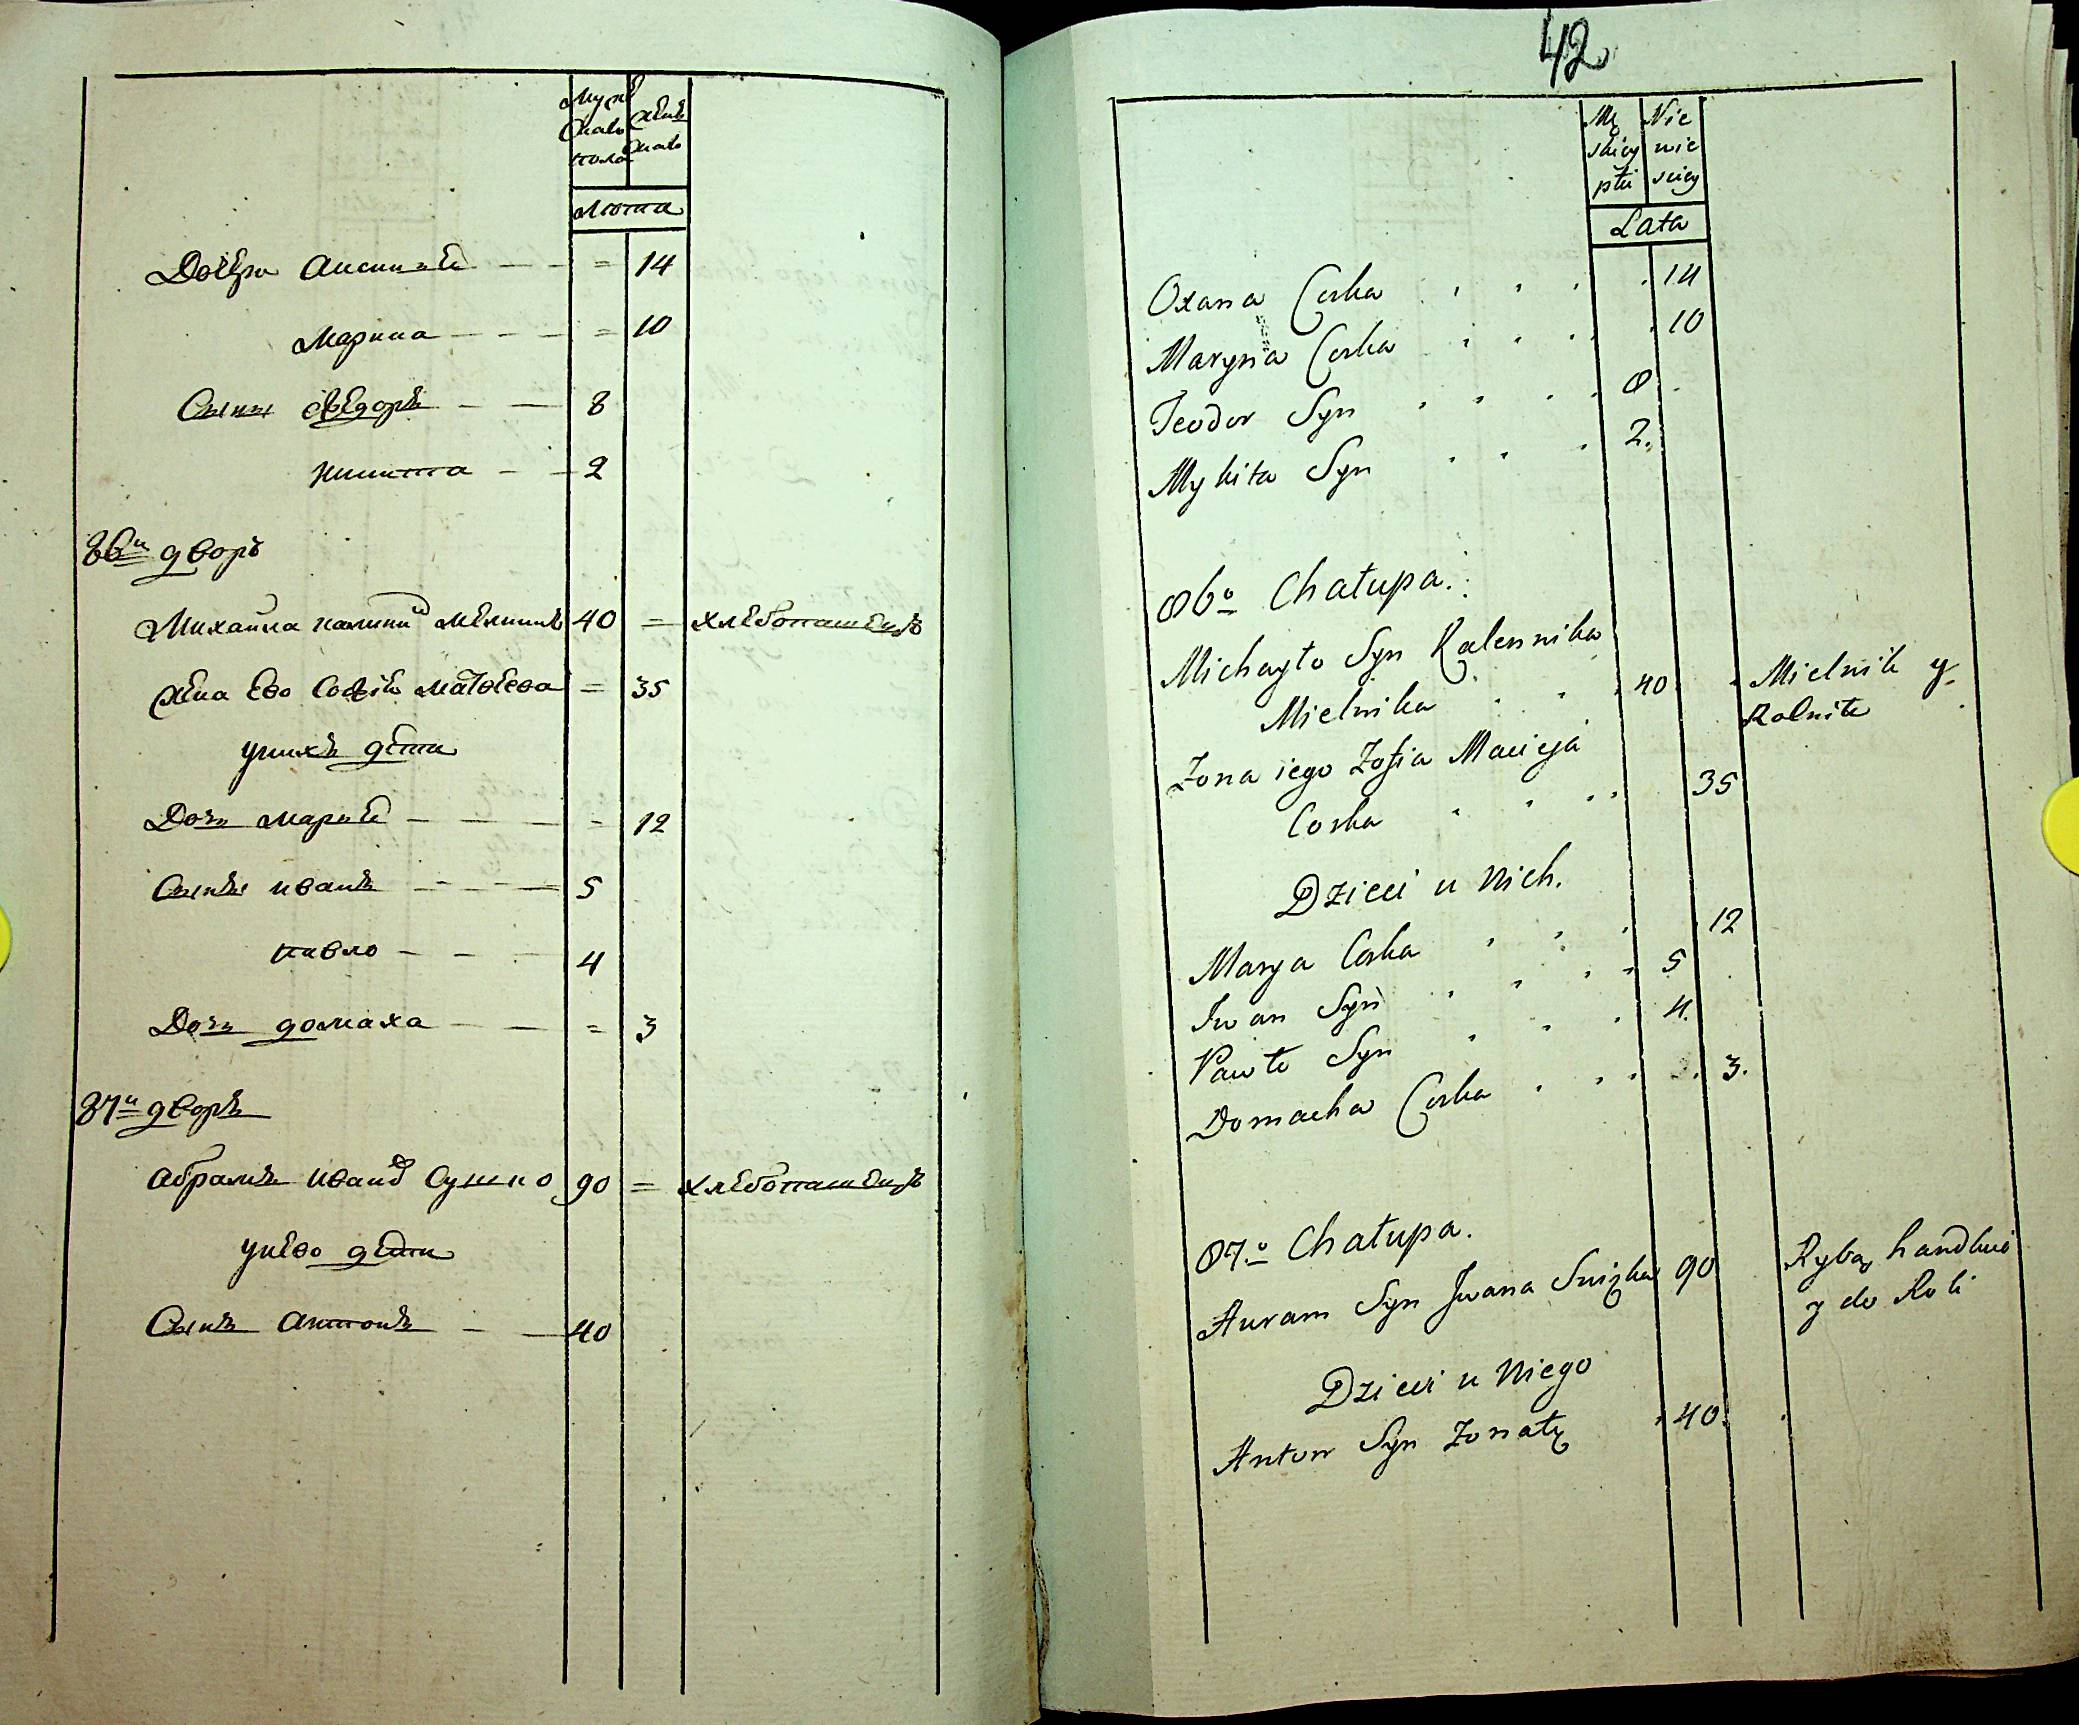 Мужс
Женс
скаго
скаго
пола
Лѣта
Дочери Аксинья 14
Марина 10
Сыны Ѳедоръ 8
Никита 2
86й дворъ
Михайла Калини Мелникъ 40 хлебопашецъ
Жена Ево Софія Матвеева 35
у нихъ дети
Дочь Марья 12
Сыны Иванъ 5
Павло 4
Дочь Домаха 3
87й дворъ
Абрамъ Ивано Сушко 90 хлебопашецъ
у Нево дети
Сынъ Антонъ 40
42
Mę Nie
skiey wie
płci sciey
Lata
Oxana Corka 14
Maryna Corka 10
Teodor Syn 8
Mykita Syn 2.
86o Chałupa.
Michayło Syn Kalennika
Mielnika 40 Mielnik y
Rolnik
Zona iego Zofia Macieja
Corka 35
Dzieci u Nich.
Marya Corka 12
Iwan Syn 5
Pawło Syn 4.
Domacha Corka 3.
87.o Chałupa.
Auram Syn Iwana 90 Rybą handluie
y do Roli
Dzieci u Niego
Anton Syn Zonaty 40.